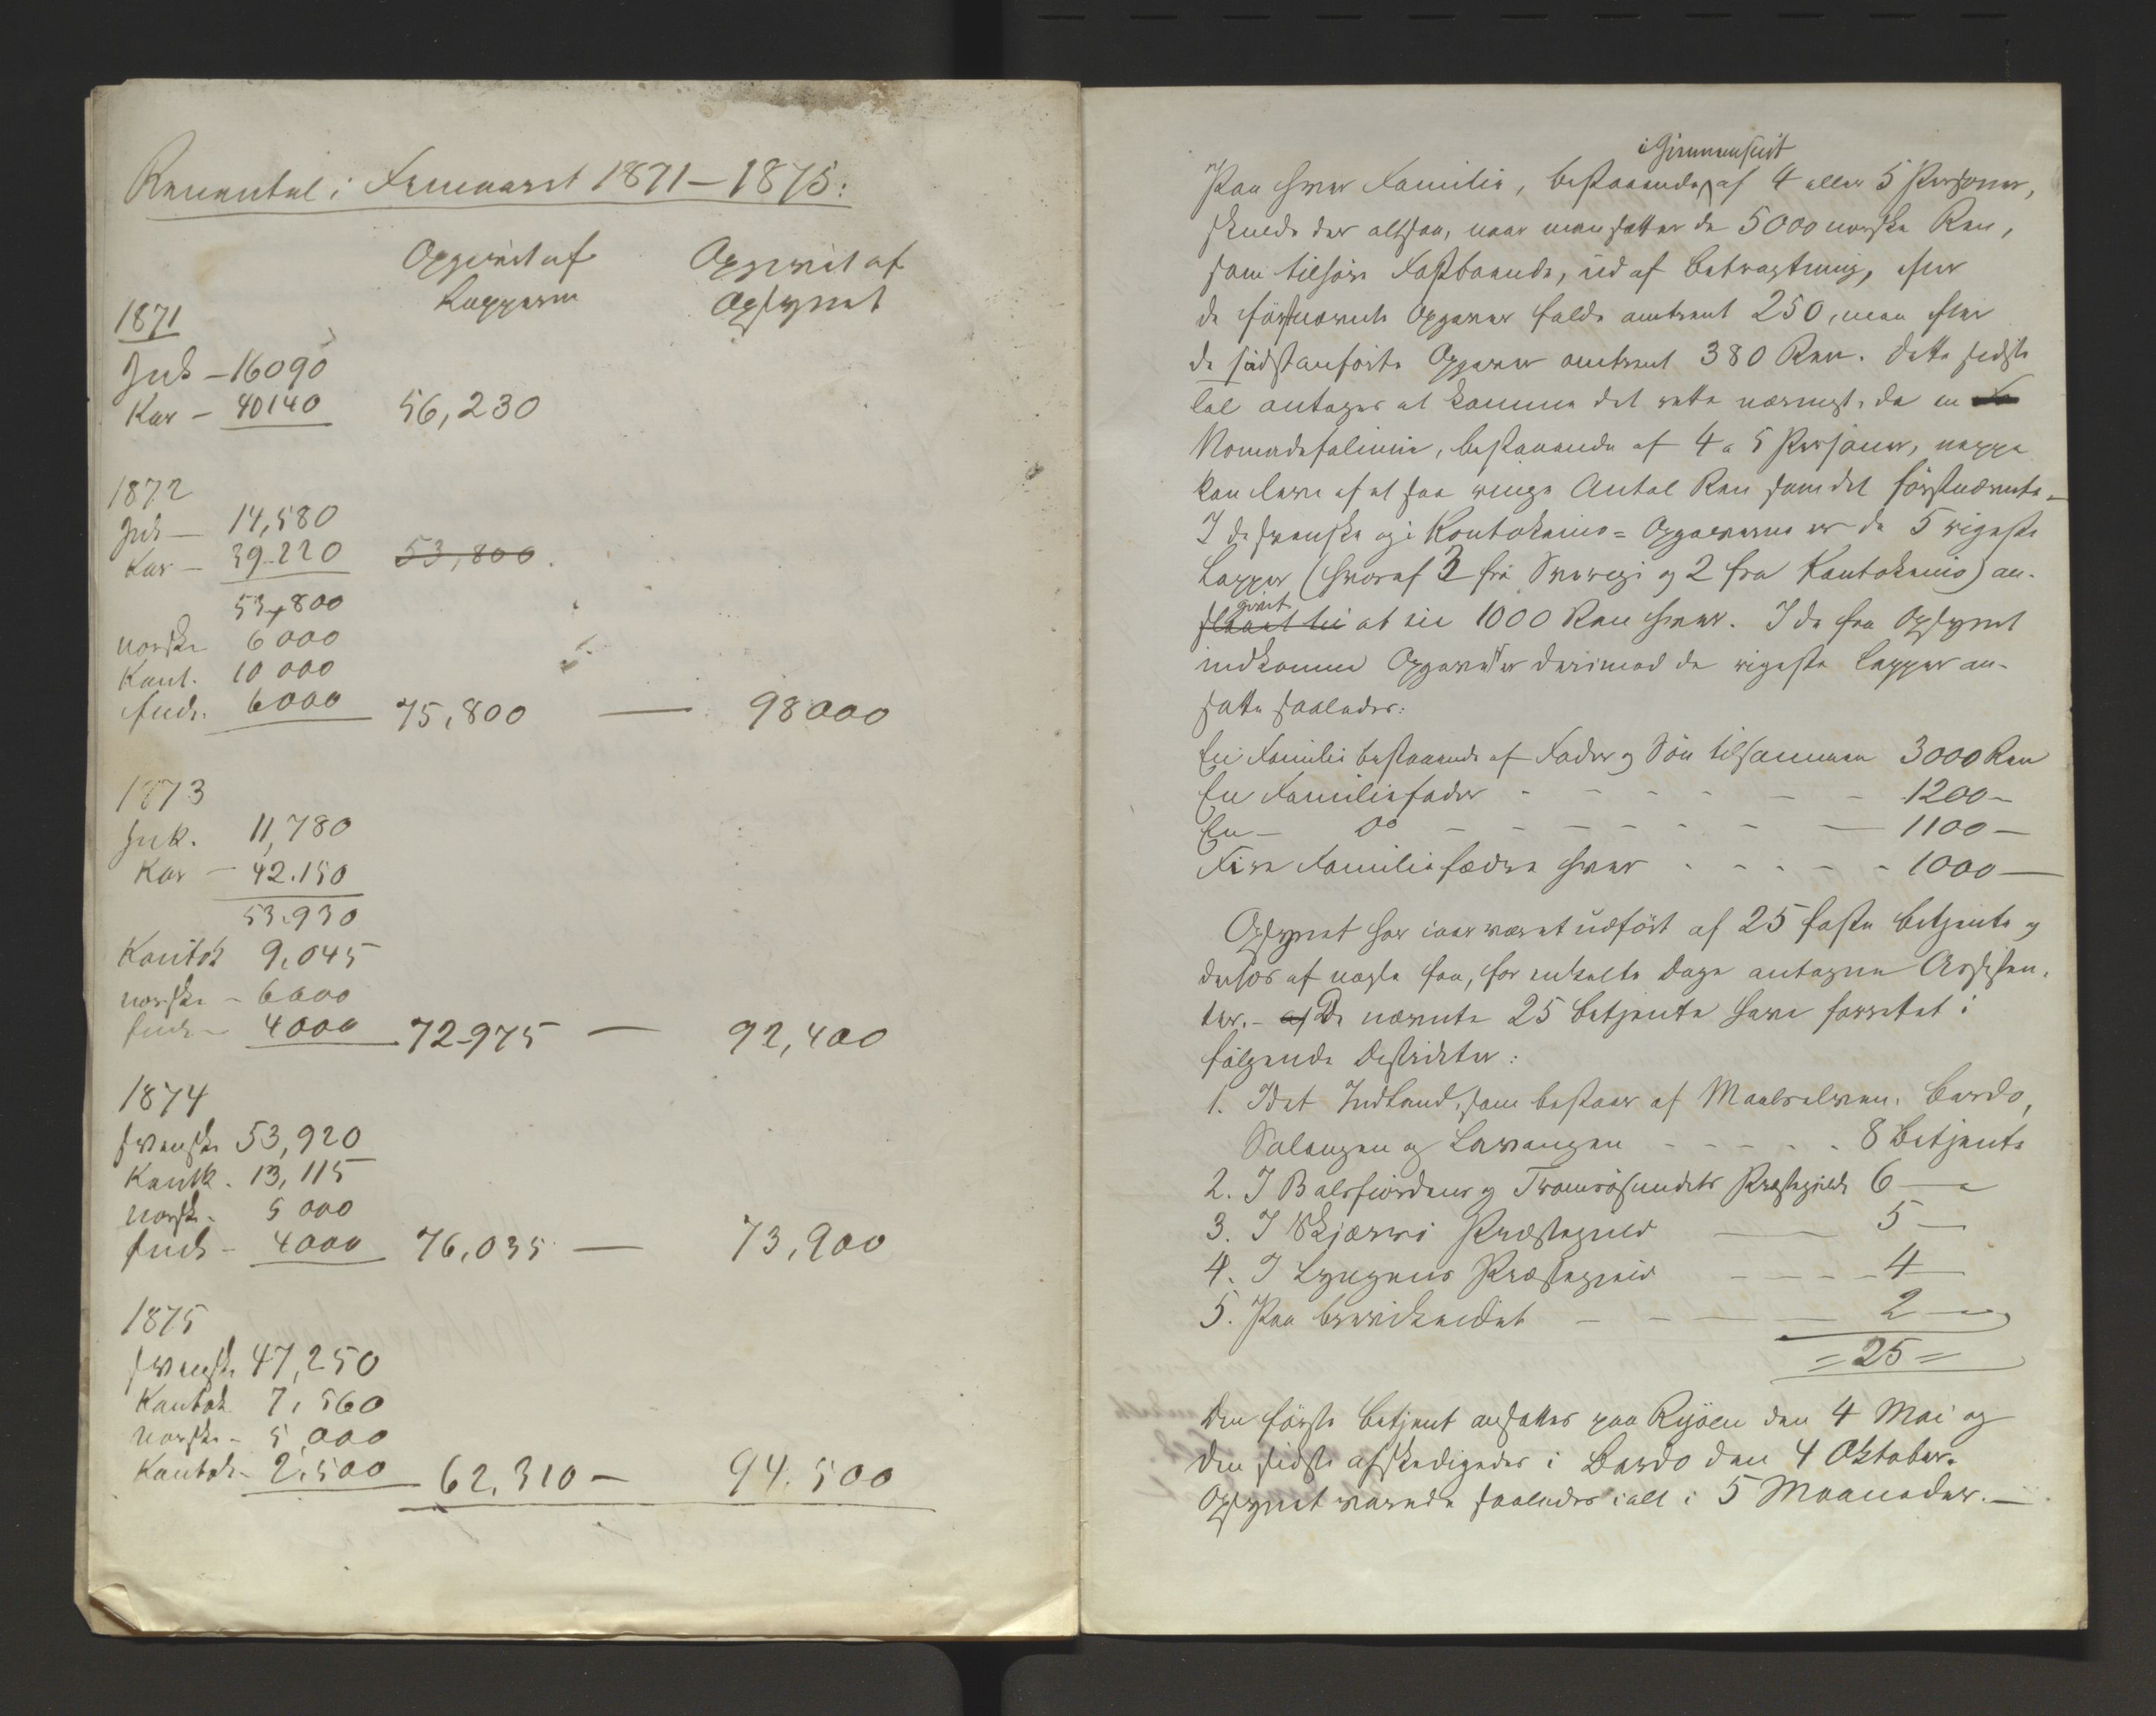 Renental i Fremaaret 1871 – 1875:
Opgivet af Opgivet af
Lapperne Opsynet
1871
Juk – 16090
Kar – 40140 56,230
1872
Juk – 14,580
Kar – 39.220 53,800.
53,800
norske 6000
Kaut. 10 000
6000 75,800 — 98000
1873
Juk. 11,780
Kar – 42.150
53.930
Kautok 9,045
norske – 6000
4000 72975 — 92,400
1874
svenske 53,920
Kautk. 13,115
norsk – 5 000
4000 76,035 — 73,900
1875
svenske 47,250
Kautok 7,560
norske – 5,000
Kautok – 2,500 62,310 – 94.500
i Gjennemsnit
Paa hver Familie, bestaaende af 4 eller 5 Personer,
skulde der altsaa, naar man sætter de 5000 norske Ren,
som tilhøre Fastboende, ud af Betragtning, efter
de førstnævnte Opgaver falde omtrent 250, men efter
de sidstanførte Opgaver omtrent 380 Ren. Dette sidste
Tal antages at komme det rette nærmest, da en Fa
Nomadefalimie, bestaaende af 4 a 5 Personer, neppe
kan leve af et saa ringe Antal Ren som det førstnævnte –
I de svenske og i Kautokeino = Opgaverne er de 5 rigeste
Lapper (hvoraf 3 fra Sverrige og 2 fra Kautokeino) an-
givet
slaaet til at eie 1000 Ren hver. I de fra Opsynet
indkomne Opgaver er derimod de rigeste Lapper an-
satte saaledes:
En Familie bestaaende af Fader og Søn tilsammen 3000 Ren
En Familiefader - - - - - - 1200 –
En – Do – - - - - - - 1100 –
Fire Familiefædre hver - - - - - 1000 —
Opsynet har iaar været udført af 25 faste Betjente og
derhos af nogle faa, for enkelte Dage antagne Assisten-
ter. – af De nævnte 25 Betjente have forrettet i
følgende Distrikter:
1. I det Indland, som bestaar af Maalselven, Bardo,
Salangen og Lavangen - - - - - 8 Betjente
2. I Balsfjordens og Tromsøsundets Præstegjeld 6 —
3. I Skjærvø Præstegjeld —— 5 —
4. I Lyngens Præstegjeld - - - - 4 —
5. Paa - - - - 2 —
= 25 =
Den første Betjent ansattes paa Ryøen den 4 Mai og
den sidste afskedigedes i Bardo den 4 Oktober.
Opsynet varede saaledes ialt i 5 Maaneder. —